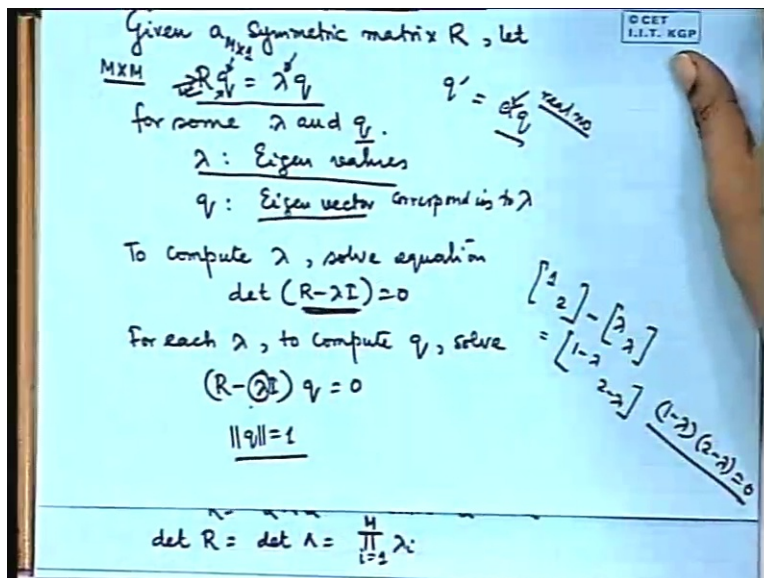 Given a symmetric matrix R, let
M×1
© CET
I.I.T. KGP
M×M
Rq = λq
q' = αq real no
for some λ and q.
λ : Eigen values
q : Eigen vector corresponding to λ
To compute λ, solve equation
det (R-λI) = 0
[1 2] - [λ λ]
= [1-λ 2-λ]
(1-λ)(2-λ)=0
For each λ, to compute q, solve
(R-λI) q = 0
||q||=1
det R = det Λ = ∏ λi
M
i=1